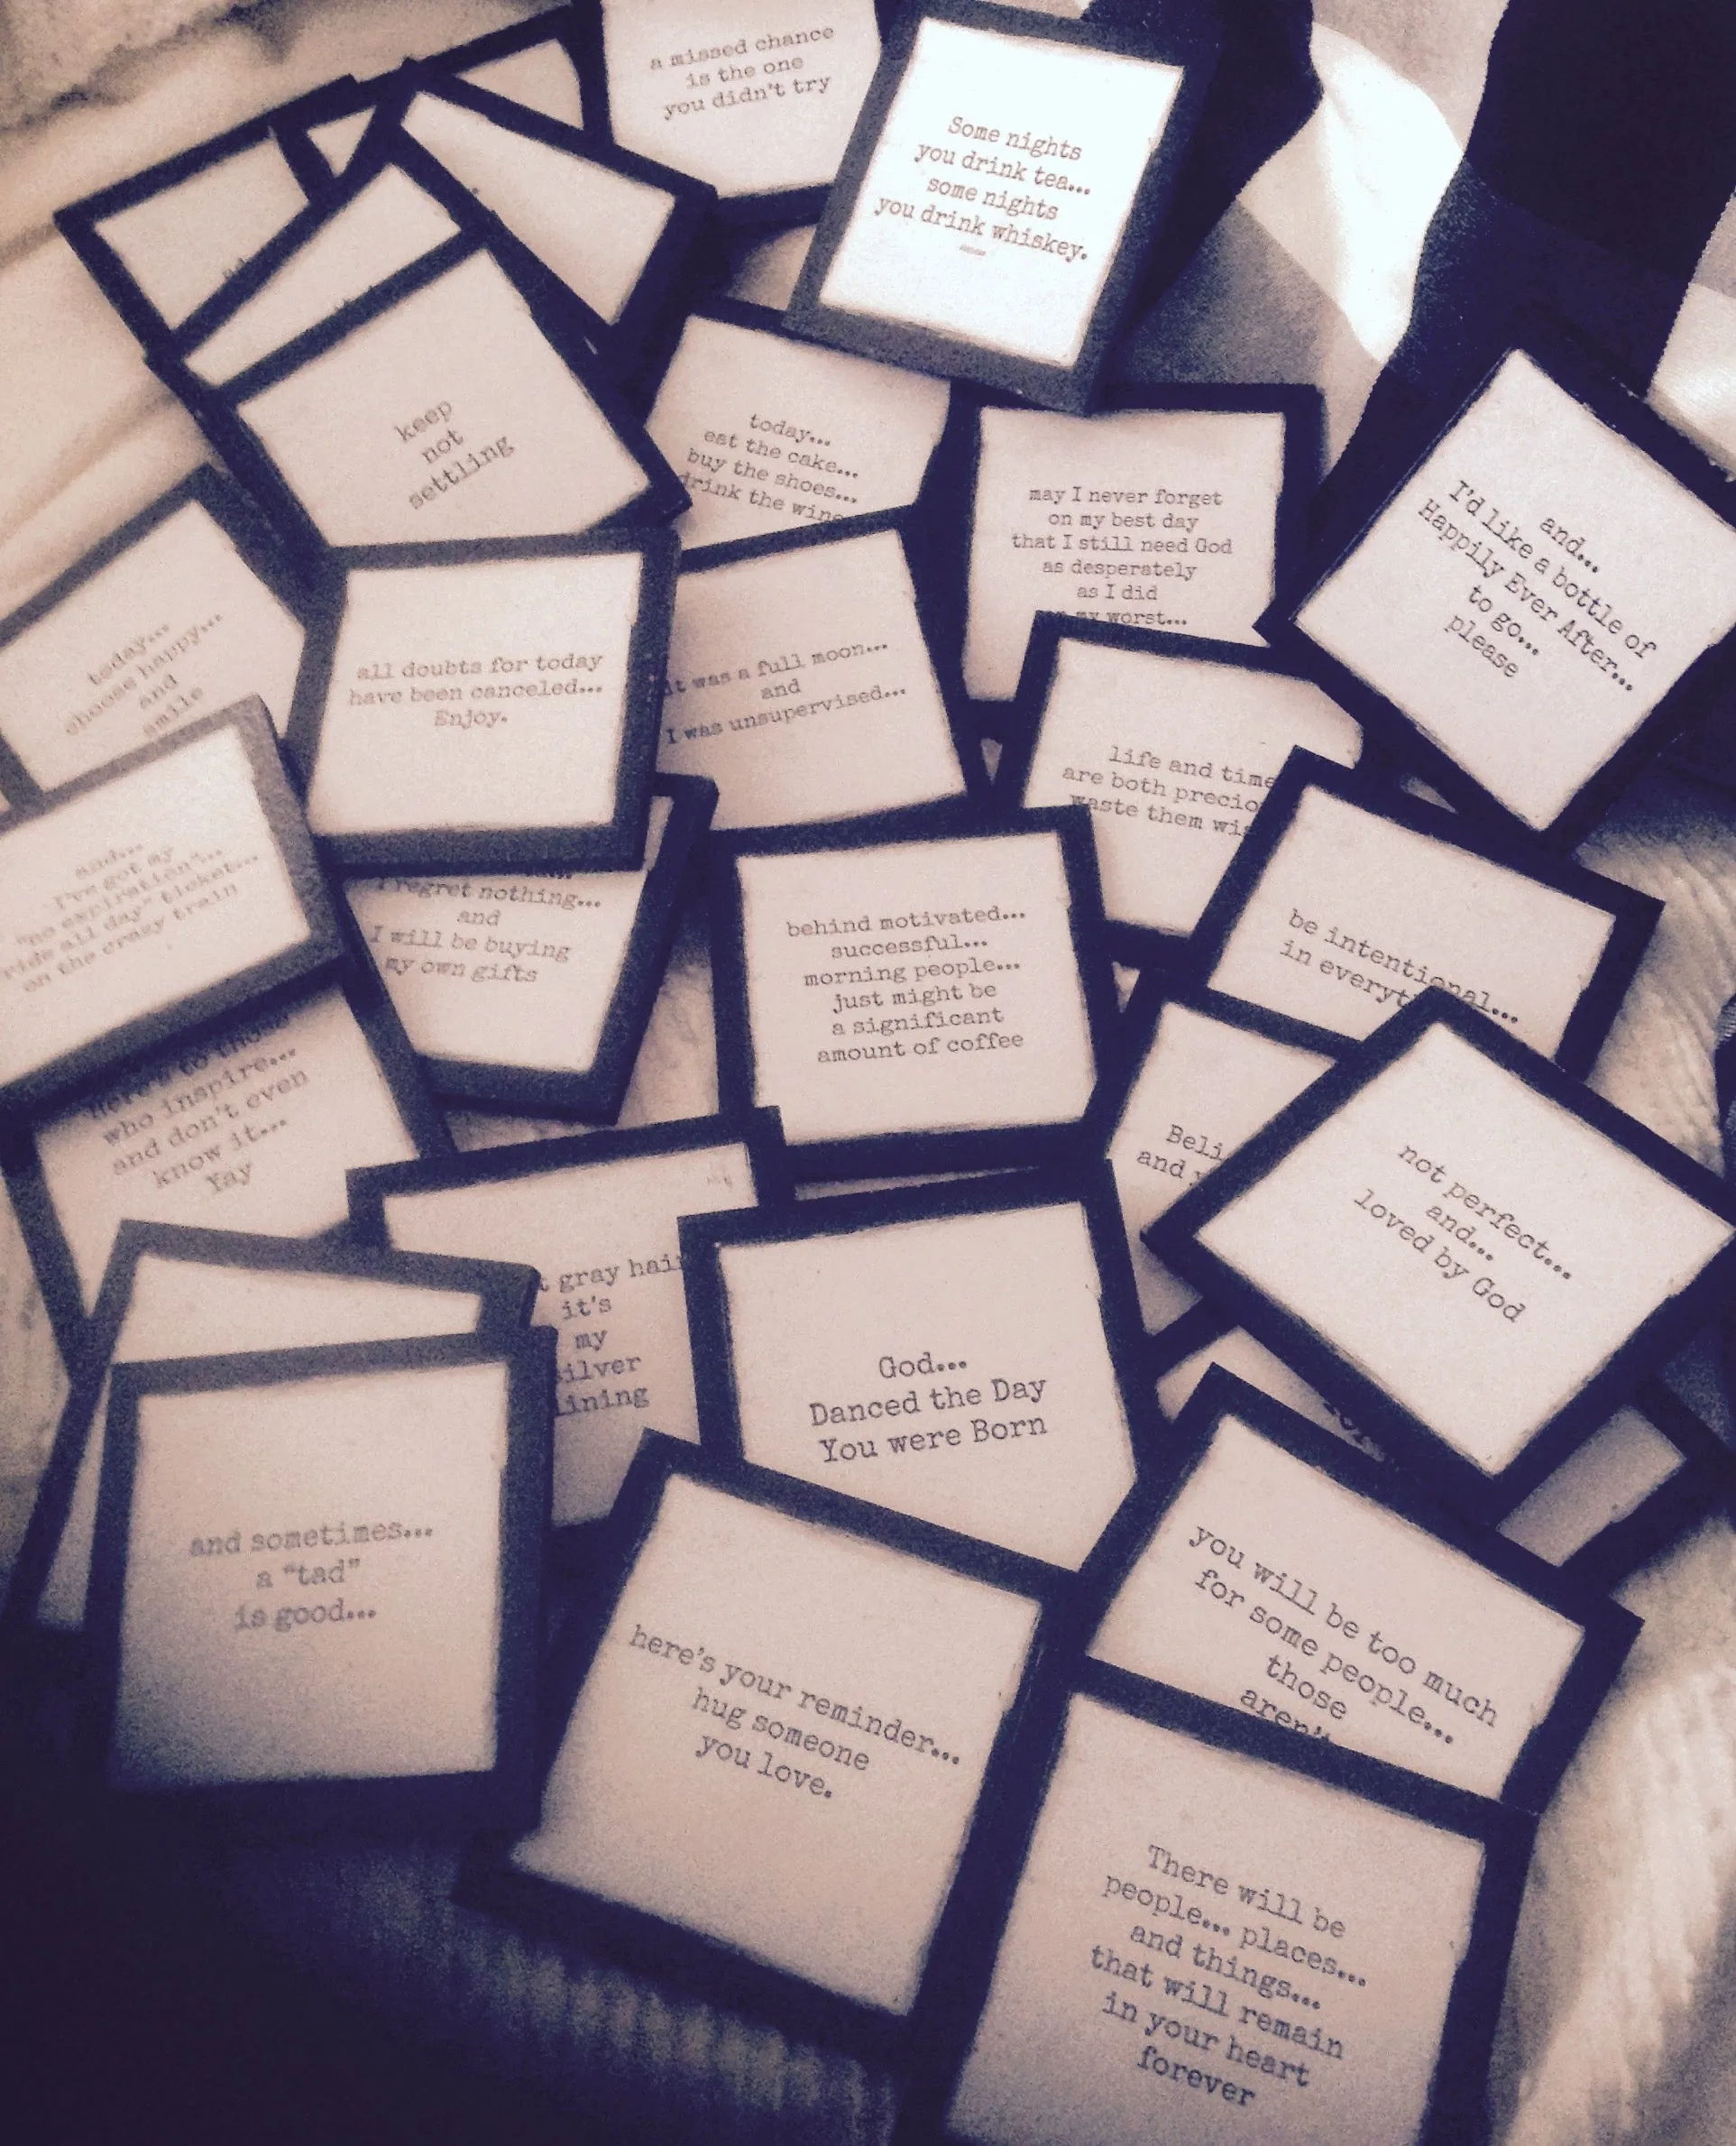 a missed chance
is the one
you didn't try
Some nights
you drink tea...
some nights
you drink whiskey.
keep
not
settling
today...
eat the cake...
buy the shoes...
drink the wine
may I never forget
on my best day
that I still need God
as desperately
as I did
my worst...
and...
I'd like a bottle of
Happily Ever After...
to go...
please
today...
choose happy...
and
smile
all doubts for today
have been canceled...
Enjoy.
it was a full moon...
and
I was unsupervised...
life and time
are both
waste them
and...
I've got my
"no expiration"...
ride all day" ticket...
on the crazy train
I regret nothing...
and
I will be buying
my own gifts
behind motivated...
successful...
morning people...
just might be
a significant
amount of coffee
be intentional...
in
here's to those
who inspire...
and don't even
know it...
Yay
and
not perfect...
and...
loved by God
gray
it's
my
silver
lining
God...
Danced the Day
You were Born
and sometimes...
a "tad"
is good...
here's your reminder...
hug someone
you love.
you will be too much
for some people...
those
aren't
There will be
people... places...
and things...
that will remain
in your heart
forever